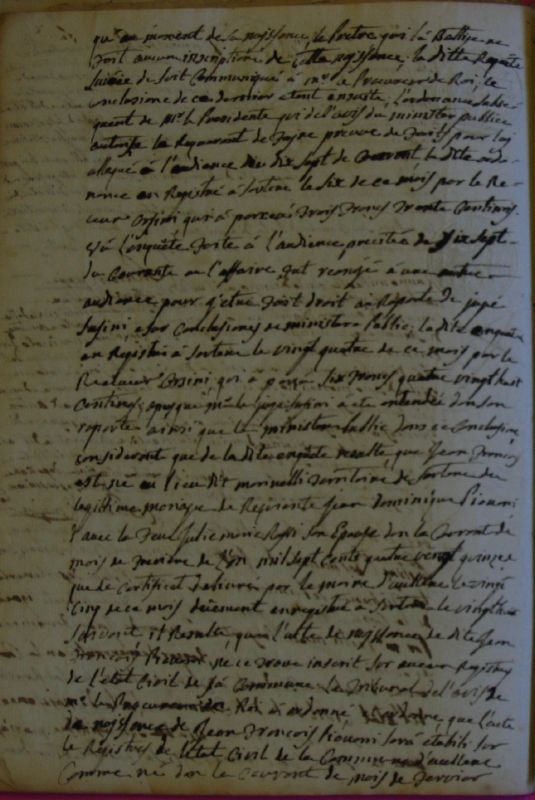 qu'au moment de sa naissance, le Pretre qui la Battise ne
fait aucun inscription de cette naissance, la ditte Requete
Suivie de soit Communiqué à mr le Procureur de Roi, le
Conclusione de ce dernier etant ensuite, l'ordonance
quent de Mr le Presidente qui de l'avis du minister publice
autorise le Requerant de faire preuve de faits pour lui
allegué à l'audience du dix sept de Courant la dite orde-
nance en Registré à Sartene le six de ce mois par le Re-
ceur Orsini qui à perceus trois francs trente Centimes.
Vù l'enquête faite à l'audience precité du dix sept
du Courante ou l'affaire fut renvojé à une autre
audience pour y etre fait droit au Raporte de juge
Susini, e sur Conclusiones de minister Public; la dite enquete
en Registré à Sartene le vingt quatre de ce mois par le
Receveur Orsini, qui à perçu six francs, quatre vingt huit
Centimes, après que mr le juge Susini à eté entendu dans son
raporte ainsi que le minister Public dans ce Conclusione,
considerant que de la dite enquête resulte que Jean Francois
est né au lieu dit Territoire de Sartene du
legittime mariage de Jean Dominique Piouani
avec la feue Julie Marie son Epouse dans le Courant de
mois de de l'an mil sept cents quatre vengt quinze
que de Certificat delivré par le maire d'aullene le vingt
Cinq de ce mois deuement enregistré à Sartene le vingt huit
suivant il Resulte, que l'acte de naissance de dite Jean
Francois ne ce trouve inscrit sur aucun Registres
de l'etat Civil de sa Commune. Le Tribunal de l'avis de
mr le Procureur de Roi à ordonne que l'acte
de naissance de Jean Francois Piouani sera etabili sur
le Registres de l'etat Civil de la Commune d'aullene
Comme né dan le Courant de mois de Janvier